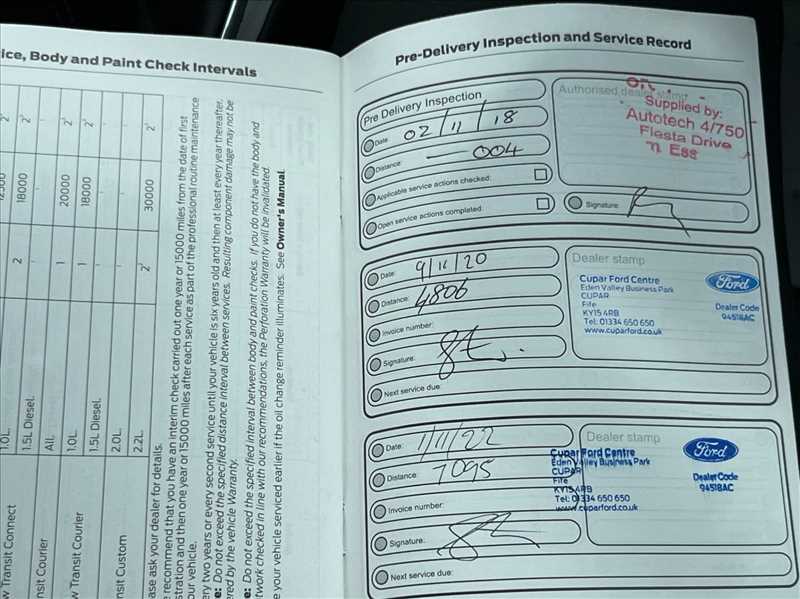 ice, Body and Paint Check Intervals
2¹
18000
2¹
20000
2¹
18000
2¹
30000
2¹
2
1
1
2¹
1.0L.
1.5L Diesel.
All.
1.0L.
1.5L Diesel.
2.0L.
2.2L.
w Transit Connect
nsit Courier
w Transit Courier
nsit Custom
ase ask your dealer for details.
recommend that you have an interim check carried out one year or 15000 miles from the date of first
stration and then one year or 15000 miles after each service as part of the professional routine maintenance
our vehicle.
ry two years or every second service until your vehicle is six years old and then at least every year thereafter.
e: Do not exceed the specified distance interval between services. Resulting component damage may not be
ered by the vehicle Warranty.
e: Do not exceed the specified interval between body and paint checks. If you do not have the body and
twork checked in line with our recommendations, the Perforation Warranty will be invalidated.
e your vehicle serviced earlier if the oil change reminder illuminates. See Owner's Manual.
Pre-Delivery Inspection and Service Record
Pre Delivery Inspection
Date 02/11/18
Distance: 004
Applicable service actions checked:
Open service actions completed:
Authorised dealer stamp
Supplied by:
Autotech 4/750
Fiesta Drive
Signature:
Date: 9/11/20
Distance: 4806
Invoice number:
Signature:
Next service due:
Dealer stamp
Cupar Ford Centre
Eden Valley Business Park
CUPAR
Fife
KY15 4RB
Tel: 01334 650 650
www.cuparford.co.uk
Ford
Dealer Code
94518AC
Date: 1/11/22
Distance: 7095
Invoice number:
Signature:
Next service due:
Dealer stamp
Cupar Ford Centre
Eden Valley Business Park
CUPAR
Fife
KY15 4RB
Tel: 01334 650 650
www.cuparford.co.uk
Ford
Dealer Code
94518AC